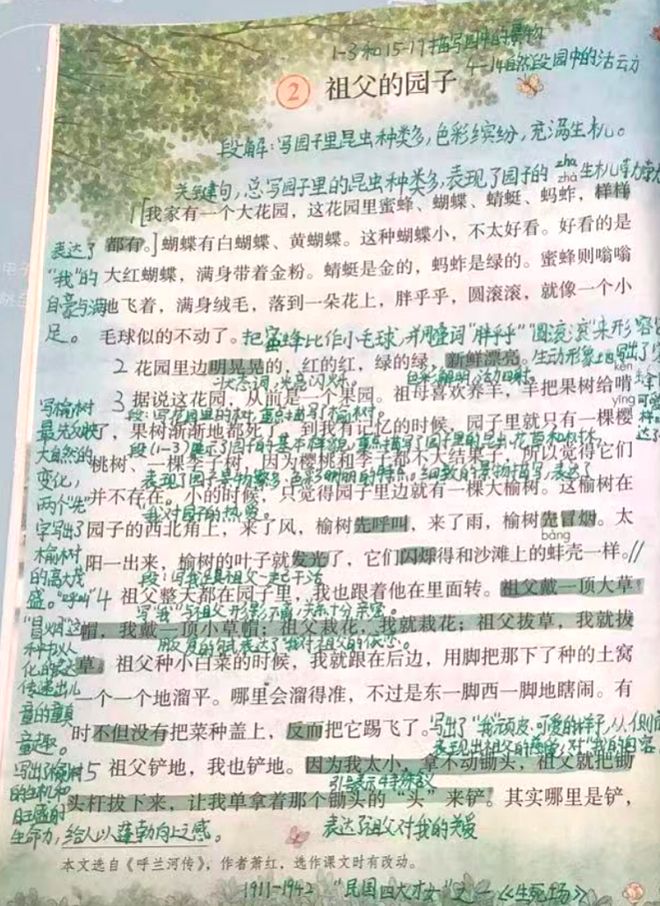 1-3和15-17描写园中的景物
4-14自然段园中的活动
2 祖父的园子
段解:写园子里昆虫种类多,色彩缤纷,充满生机。
关键句,总写园子里的昆虫种类多,表现了园子的生机
zhà
1[我家有一个大花园,这花园里蜜蜂、蝴蝶、蜻蜓、蚂蚱,样样
都有。]蝴蝶有白蝴蝶、黄蝴蝶。这种蝴蝶小,不太好看。好看的是
大红蝴蝶,满身带着金粉。蜻蜓是金的,蚂蚱是绿的。蜜蜂则嗡嗡
地飞着,满身绒毛,落到一朵花上,胖乎乎,圆滚滚,就像一个小
毛球似的不动了。把蜜蜂比作小毛球,并用叠词"胖乎乎""圆滚滚"来形容
表达了
"我"的
自豪与满
足。
生动形象地写出了
2 花园里边明晃晃的,红的红,绿的绿,新鲜漂亮。
状态词,光亮闪烁。
色彩鲜明,活力四射。
kěn
3 据说这花园,从前是一个果园。祖母喜欢养羊,羊把果树给啃
yīng
段:写花园里的树,重点描写了榆树。
了,果树渐渐地都死了。到我有记忆的时候,园子里就只有一棵樱
段(1-3)展示了园子的基本样貌,重点描写了园子里的昆虫、花草和树木,
桃树、一棵李子树,因为樱桃和李子都不大结果子,所以觉得它们
表现了园子景物繁多,色彩明丽的特点。细致的景物描写,表达了
并不存在。小的时候,只觉得园子里边就有一棵大榆树。这榆树在
"我"对园子的热爱。
园子的西北角上,来了风,榆树先呼叫,来了雨,榆树先冒烟。太
bàng
阳一出来,榆树的叶子就发光了,它们闪烁得和沙滩上的蚌壳一样。//
写榆树
最先如映
大自然的
变化,
两个"先"
字写出了
榆树
的高大茂
盛。"呼叫"
"冒烟"这
种拟人
化的表达
传递出儿
童的童真
童趣。
写出了榆树
的生机和
旺盛的
生命力,给人以蓬勃向上之感。
段:写我跟祖父一起干活
4 祖父整天都在园子里,我也跟着他在里面转。祖父戴一顶大草
写"我"与祖父形影不离,关系十分亲密。
帽,我戴一顶小草帽;祖父栽花,我就栽花;祖父拔草,我就拔
草。祖父种小白菜的时候,我就跟在后边,用脚把那下了种的土窝
一个一个地溜平。哪里会溜得准,不过是东一脚西一脚地瞎闹。有
时不但没有把菜种盖上,反而把它踢飞了。写出了"我"顽皮、可爱的样子,从侧面
表现出祖父的慈爱,对"我"的包容
5 祖父铲地,我也铲地。因为我太小,拿不动锄头,祖父就把锄
引号表示特殊含义
头杆拔下来,让我单拿着那个锄头的"头"来铲。其实哪里是铲,
表达了祖父对我的关爱
本文选自《呼兰河传》,作者萧红,选作课文时有改动。
1911-1942 "民国四大才女"之一《生死场》